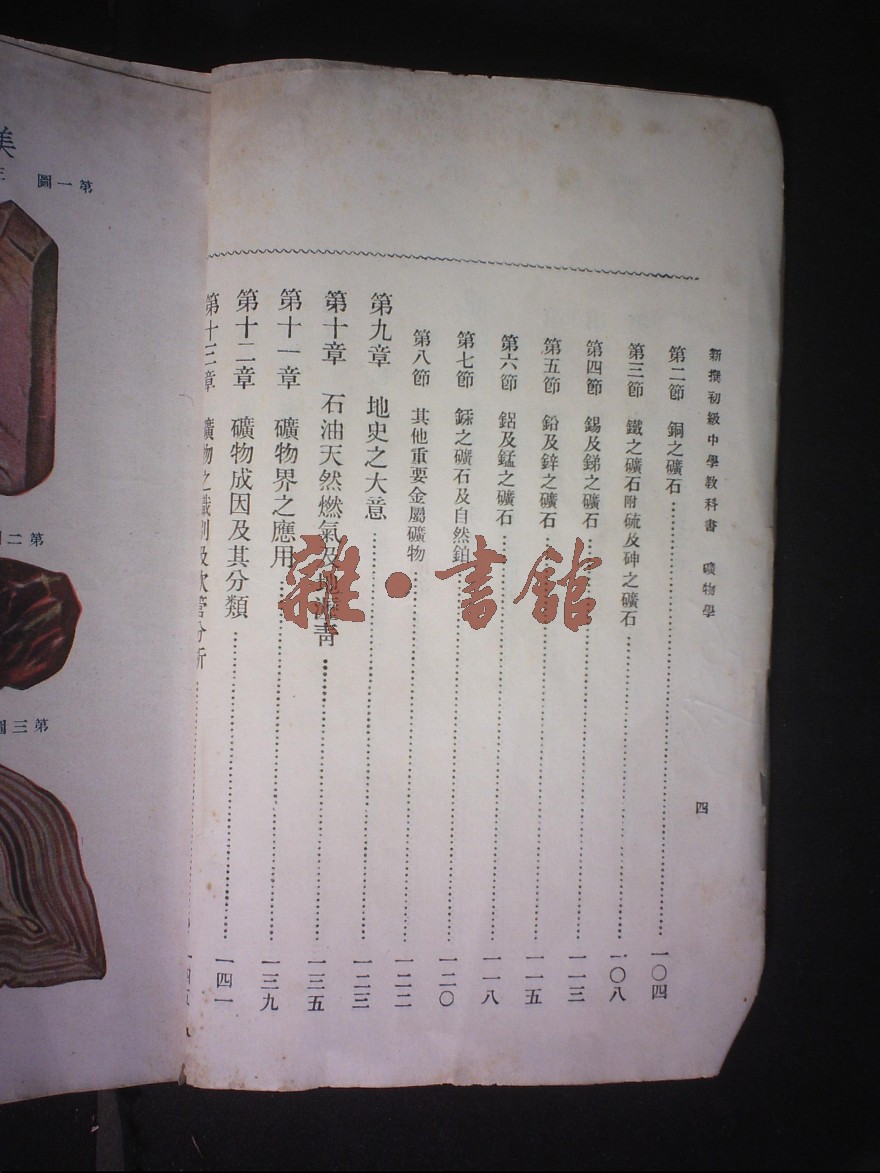 新撰初級中學教科書　礦物學
四
第二節　銅之礦石……一〇四
第三節　鐵之礦石附硫及砷之礦石……一〇八
第四節　錫及銻之礦石……一一三
第五節　鉛及鋅之礦石……一一五
第六節　鋁及錳之礦石……一一八
第七節　銾之礦石及自然鉑……一二〇
第八節　其他重要金屬礦物……一二二
第九章　地史之大意……一二三
第十章　石油天然燃氣及地瀝青……一三五
第十一章　礦物界之應用……一三九
第十二章　礦物成因及其分類……一四一
第十三章　礦物之識別及吹管分析……一四五
雜·書館
美
第一圖
第二圖
第三圖